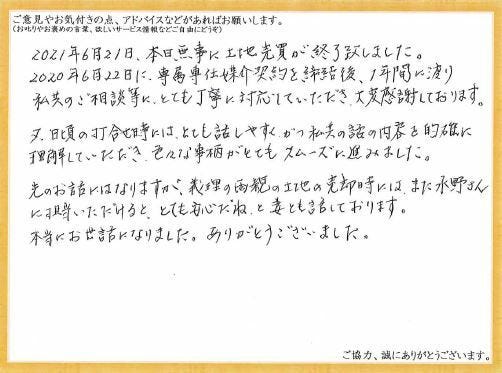 ご意見やお気付きの点、アドバイスなどがあればお願いします。
(お叱りやお褒めの言葉、欲しいサービス情報などご自由にどうぞ)
2021年6月21日、本日無事に土地売買が終了致しました。
2020年6月22日に、専属専任媒介契約を締結後、1年間に渡り
私共のご相談等に、とても丁寧に対応していただき、大変感謝しております。
又、日頃の打合せ時には、とても話しやすく かつ私共の話の内容を的確に
理解していただき、色々な事柄がとても スムーズに進みました。
先のお話にはなりますが、義理の両親の土地の売却時には、また永野さん
に担当いただけると、とても安心だね、と妻とも話しております。
本当にお世話になりました。ありがとうございました。
ご協力、誠にありがとうございます。